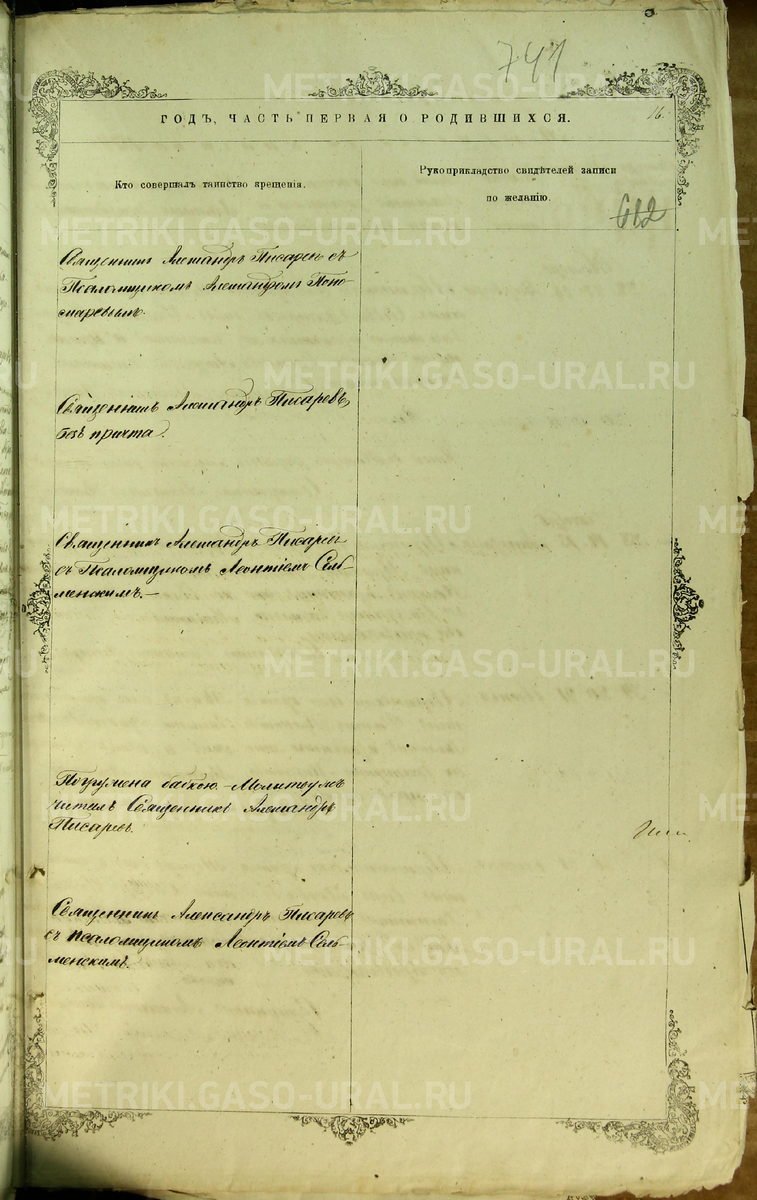 741
ГОДЪ, ЧАСТЬ ПЕРВАЯ О РОДИВШИХСЯ.
16.
Кто совершалъ таинство крещенія.
Рукоприкладство свидѣтелей записи
по желанію.
612
Священникъ Александръ Писаревъ съ
Псаломщикомъ Александромъ Поно-
маревымъ.
Священникъ Александръ Писаревъ,
безъ причта.
Священникъ Александръ Писаревъ
съ Псаломщикомъ Леонтіемъ Сель-
менскимъ.—
Погружена бабкою. Молитву
читалъ Священникъ Александръ
Писаревъ.
Священникъ Александръ Писаревъ
съ псаломщикомъ Леонтіемъ Сель-
менскимъ.
METRIKI.GASO-URAL.RU